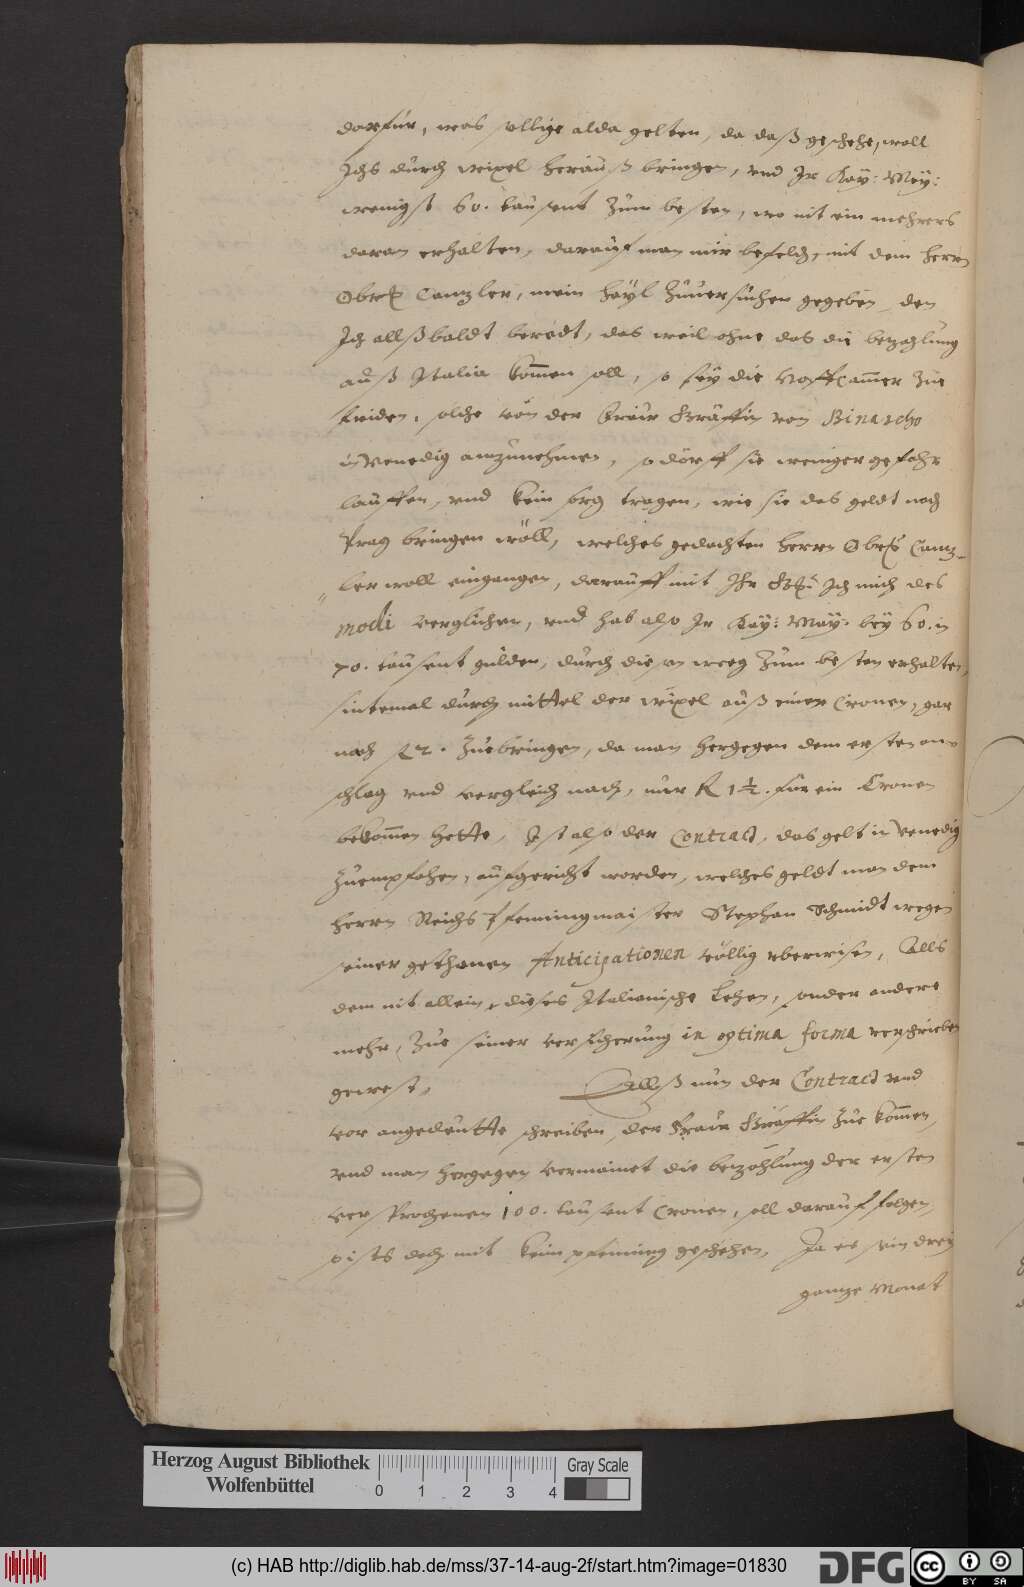 darfür, was sollige alda gelten, da daß geschehe, woll
Ichs durch wixel herauß bringen, vnd Ir Kay: May:
wenigst 60. tausent zum besten, wo nit ein mehrers
daran erhalten, darauf man mir befelch, mit dem herrn
Obrist Canzler, mein hayl zuuersuchen gegeben, den
Ich allßbaldt beredt, das weil ohne das die bezahlung
auß Italia kommen soll, so sey die Hoffcammer zue
friden, solche von der Frau Gräffin von Binascho
in Venedig anzunehmen, so dörff sie weniger gefahr
lauffen, vnd kein sorg tragen, wie sie das geldt nach
Prag bringen wöll, welches gedachten herrn Obrist Canz-
ler woll eingangen, darauff mit Ihr Ich mich des
modi verglichen, vnd hab also Ir Kay: May: bey 60. in
70. tausent gulden, durch disen weeg zum besten erhalten,
sintemal durch mittel der wixel auß einer Cronen, gar
nach 2. zuebringen, da man hergegen dem ersten an-
schlag vnd vergleich nach, nur 1½. für ein Cronen
bekommen hette, Ist also der Contract, das gelt in Venedig
zuempfahen, aufgericht worden, welches geldt man dem
herrn Reichs Pfenningmaister Stephan Schmidt wegen
seiner gethanen Anticipationen völlig vberwisen, Alls
dem nit allein, dieses Italianische Lehen, sonder andere
mehr, zue seiner versicherung in optima forma verschrieben
gewest, Allß nun der Contract vnd
vor angedeutte schreiben, der Fraw Gräffin zue kommen,
vnd man hergegen vermainet die bezahlung der ersten
versprochenen 100. tausent Cronen, soll darauf folgen,
so ists doch mit kein pfenning geschehen, Ja es sein drey
ganze Monat
Herzog August Bibliothek
Wolfenbüttel
0 1 2 3 4
Gray Scale
(c) HAB http://diglib.hab.de/mss/37-14-aug-2f/start.htm?image=01830
DFG
cc BY SA